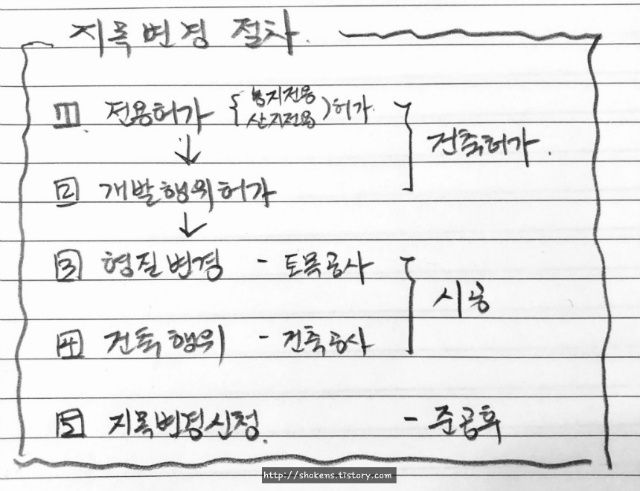 지목변경 절차.
1. 전용허가 { 농지전용 산지전용 ) 허가
건축허가.
↓
2 개발행위허가
↓
3 형질변경 - 토목공사
시공
4 건축행위 - 건축공사
5 지목변경신청. - 준공후
http://shokens.tistory.com